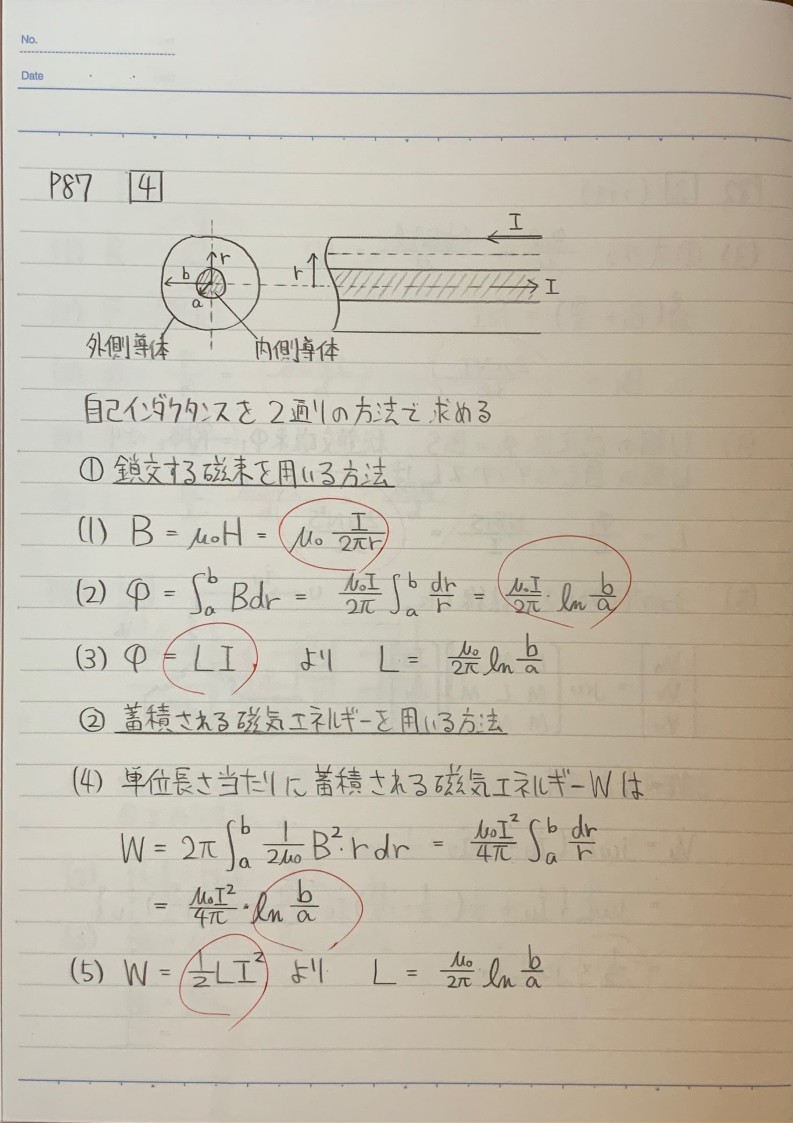 No.
Date
P87 4
I
r
b
a
r
I
外側導体 内側導体
自己インダクタンスを2通りの方法で求める
① 鎖交する磁束を用いる方法
(1) B = μ₀H = μ₀ I/2πr
(2) Φ = ∫ₐᵇ Bdr = μ₀I/2π ∫ₐᵇ dr/r = μ₀I/2π · ln b/a
(3) Φ = LI より L = μ₀/2π ln b/a
② 蓄積される磁気エネルギーを用いる方法
(4) 単位長さ当たりに蓄積される磁気エネルギーWは
W = 2π ∫ₐᵇ 1/2μ₀ B²·r dr = μ₀I²/4π ∫ₐᵇ dr/r
= μ₀I²/4π · ln b/a
(5) W = 1/2 LI² より L = μ₀/2π ln b/a